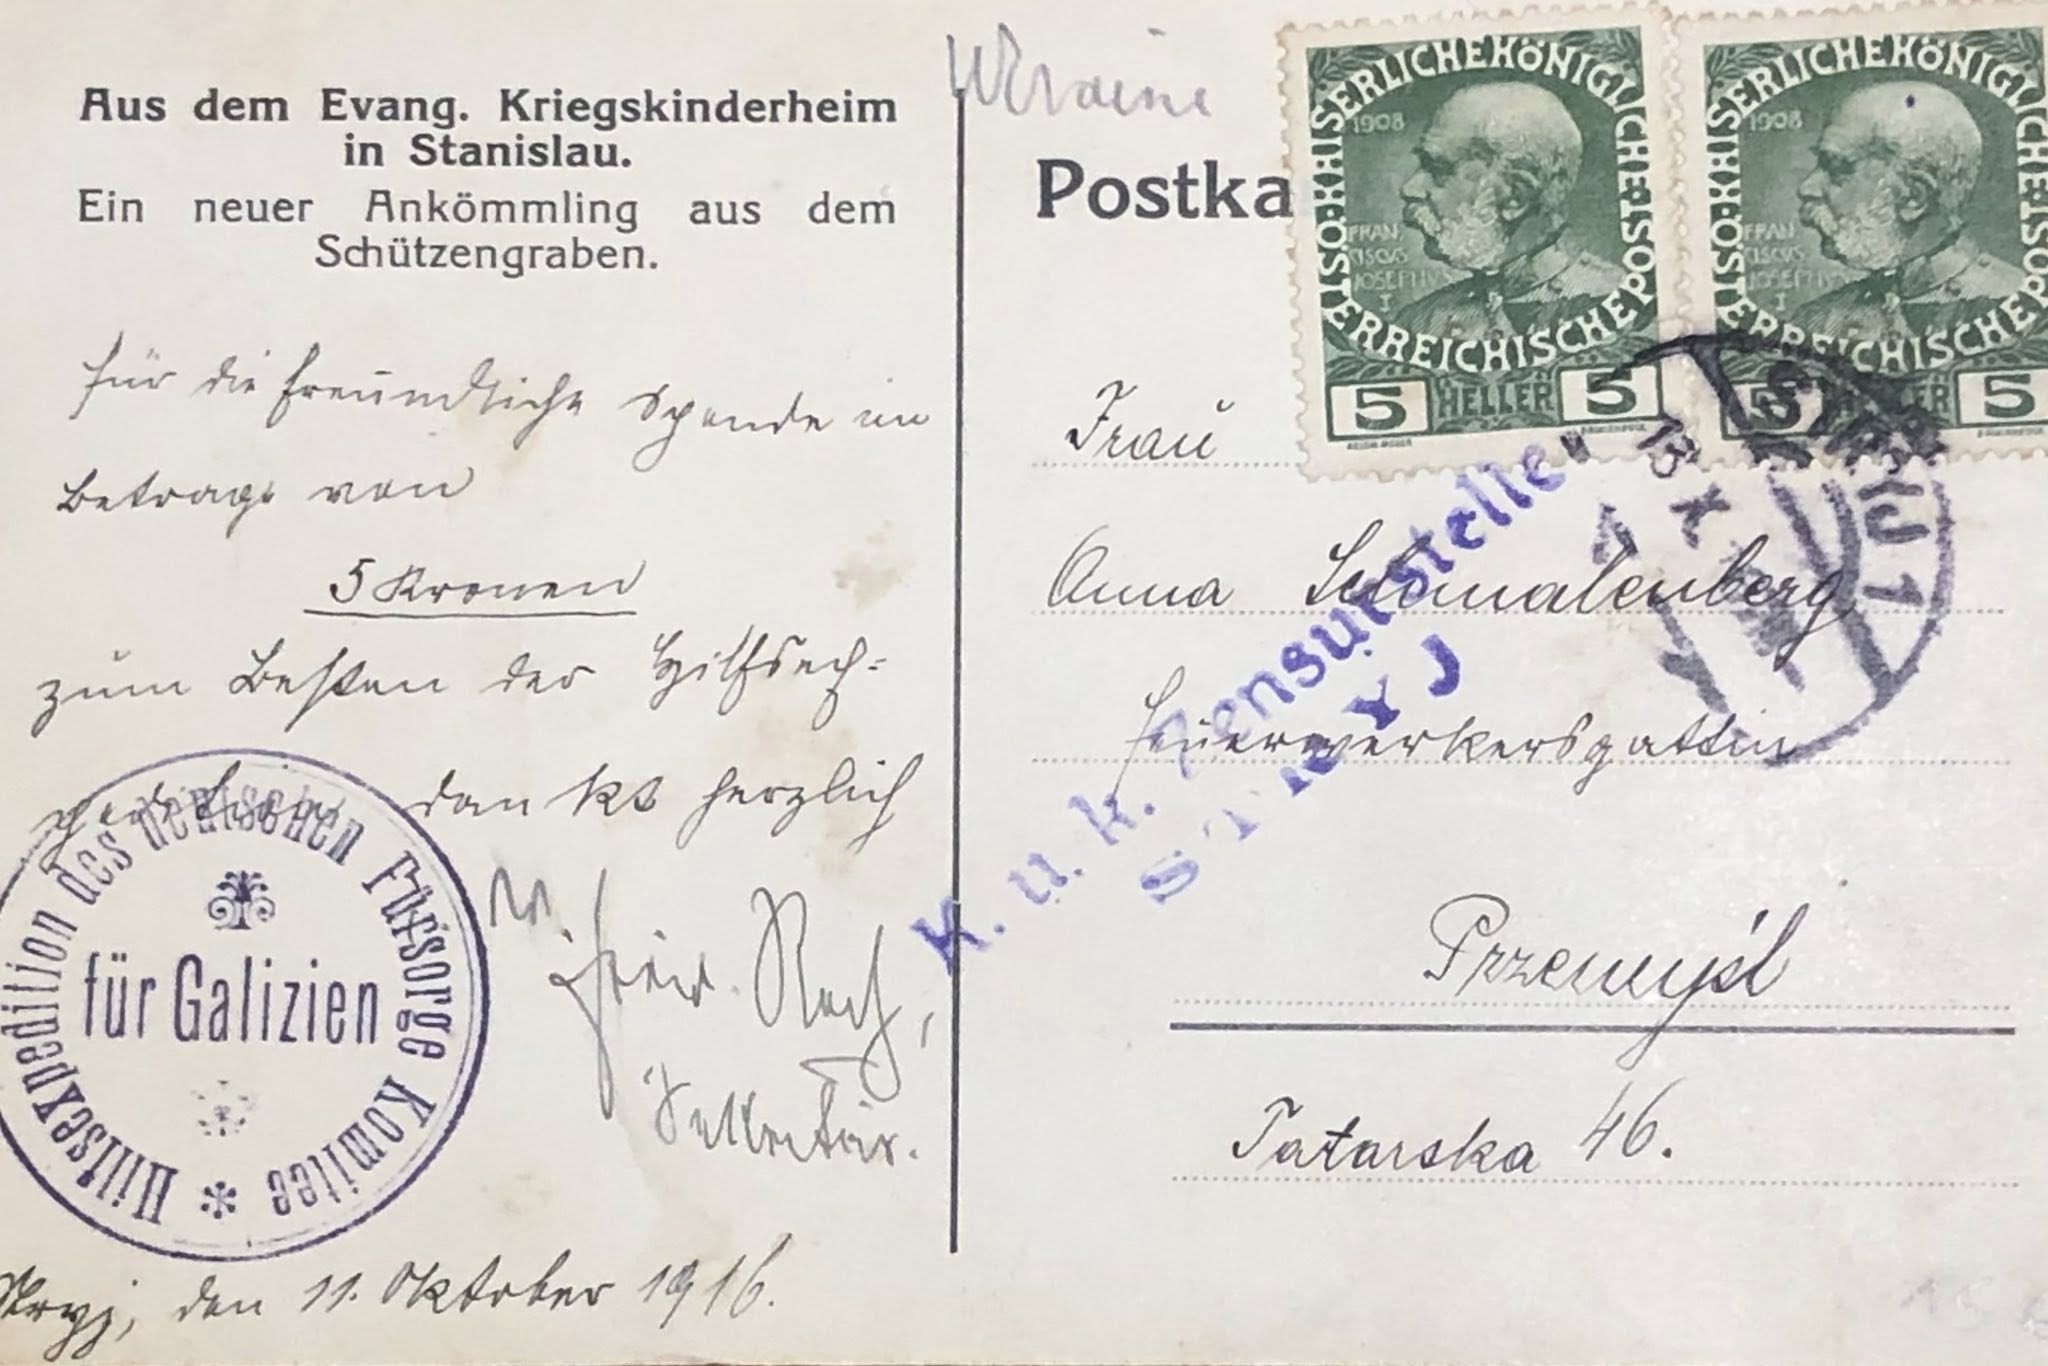 Aus dem Evang. Kriegskinderheim
in Stanislau.
Ein neuer Ankömmling aus dem
Schützengraben.
für die freundliche Spende im
Betrage von
5 Kronen
zum Besten der Hilfsex-
pedition dankt herzlich
Sekretär.
Hilfsexpedition des deutschen Fürsorge Komitee
für Galizien
Stryj, den 11. Oktober 1916.
Ukraine
Postka
KAISERLICHEKÖNIGLICHE POST
ÖSTERREICHISCHE
1908
FRAN
CISCVS
JOSEPHVS
I
5 HELLER 5
KAISERLICHEKÖNIGLICHE POST
ÖSTERREICHISCHE
1908
FRAN
CISCVS
JOSEPHVS
I
5 HELLER 5
STRYJ 1
13 X
K. u. k. Zensurstelle
STRYJ
Frau
Anna Schmalenberg
Feuerwerkersgattin
Przemyśl
Tatarska 46.